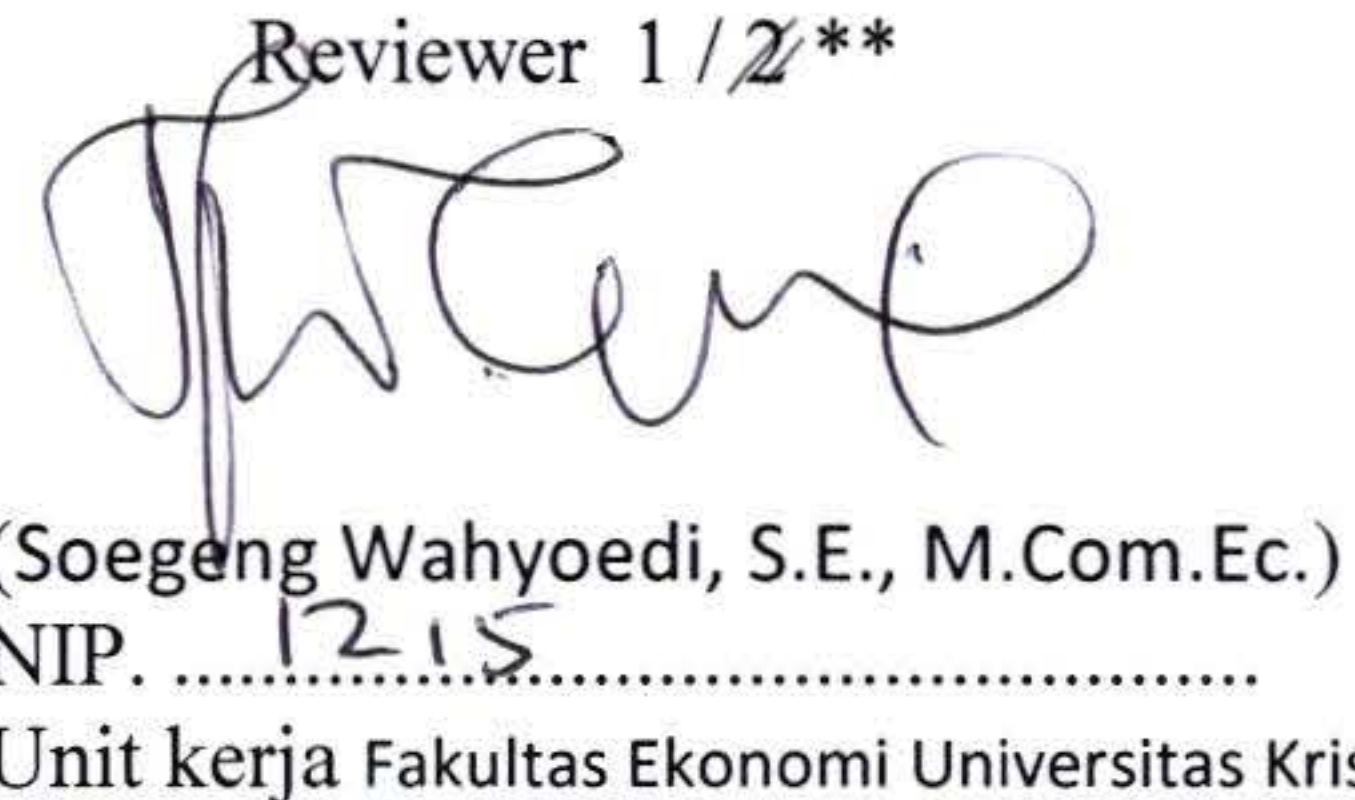 Reviewer 1 / 2 **
(Soegeng Wahyoedi, S.E., M.Com.Ec.)
NIP. 1215
Unit kerja Fakultas Ekonomi Universitas Kris